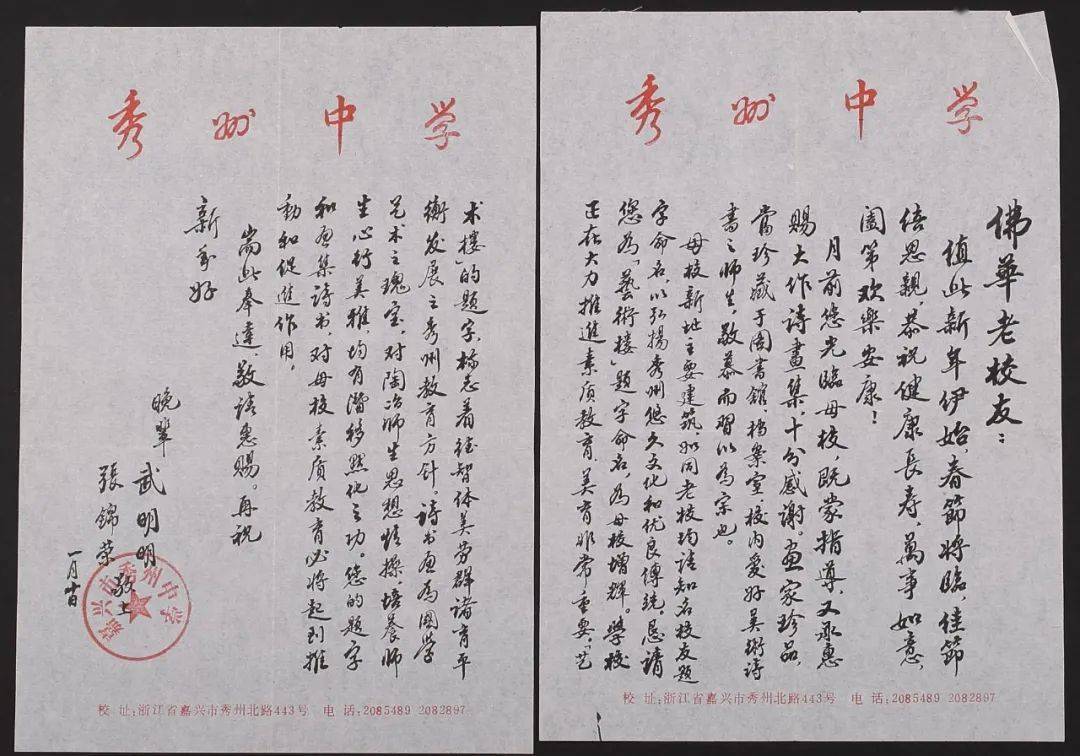 秀州中学
佛華老校友：
值此新年伊始，春節将臨，佳節
倍思親，恭祝健康長寿，萬事如意，
阖第欢樂安康！
月前您光臨母校，既蒙指導，又承惠
赐大作诗畫集，十分感谢。画家珍品，
當珍藏于图書館、档案室校内爱好美術詩
書之师生，敬慕而習以为宗也。
母校新地主要建筑，如同老校均請知名校友題
字命名，以弘揚秀州悠久文化和优良傳统，恳請
您为「藝術樓」题字命名，为母校增輝。學校
正在大力推進素质教育，美育非常重要，「艺
校 址:浙江省嘉兴市秀州北路443号 电 话:2085489 2082897
秀州中学
术樓」的题字，标志着德智体美劳群诸育平
衡发展之秀州教育方针。诗书画为國学
艺术之瑰宝，对陶冶师生思想情操，培养师
生心行美雅，均有潜移默化之功。您的题字
和画集诗书，对母校素质教育必将起到推
動和促進作用。
耑此奉達，敬请惠赐。再祝
新年好
晚辈 武明明
張錦荣 敬上
一月廿日
嘉兴市秀州中学
校 址:浙江省嘉兴市秀州北路443号 电 话:2085489 2082897